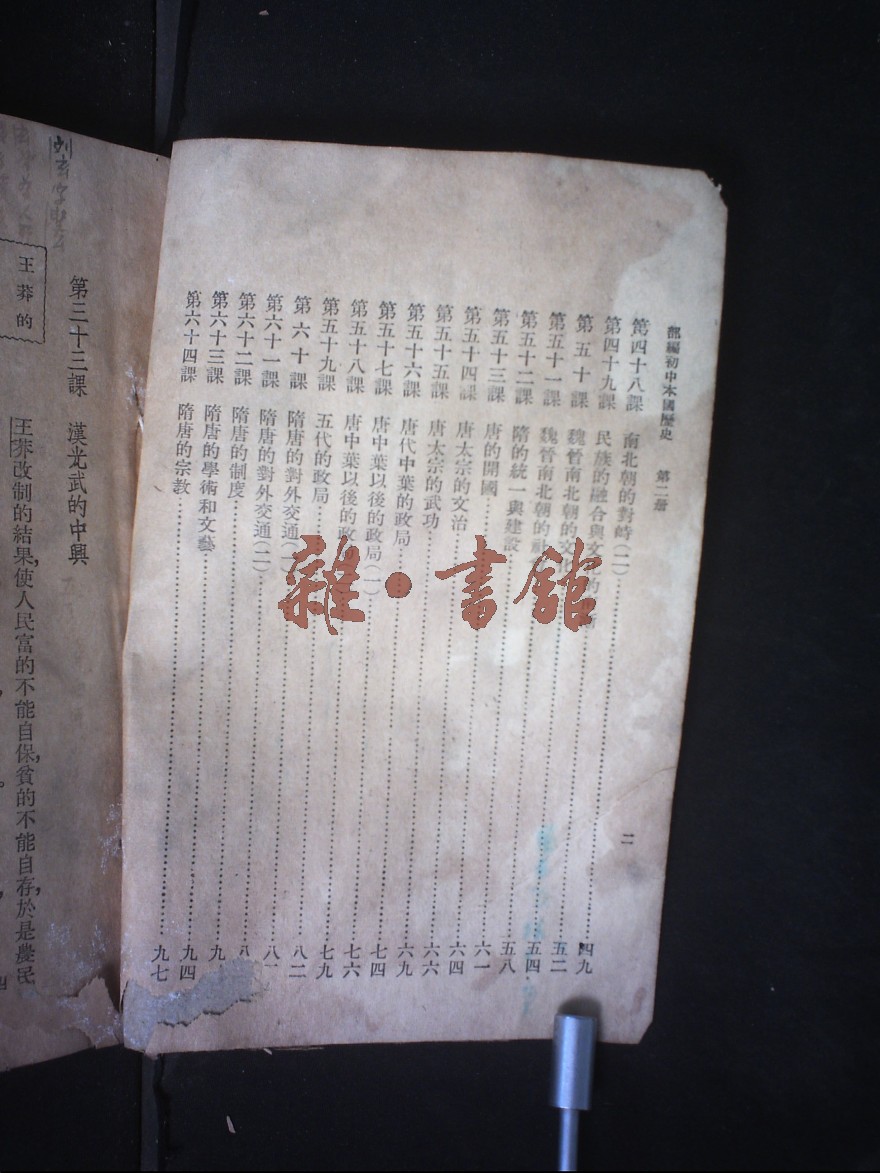 部編初中本國歷史 第二冊
二
第四十八課 南北朝的對峙(二) 四九
第四十九課 民族的融合與文 的 五二
第五十課 魏晉南北朝的文化 五四
第五十一課 魏晉南北朝的社 五八
第五十二課 隋的統一與建設 六一
第五十三課 唐的開國 六四
第五十四課 唐太宗的文治 六六
第五十五課 唐太宗的武功 六九
第五十六課 唐代中葉的政局 七四
第五十七課 唐中葉以後的政局(一) 七六
第五十八課 唐中葉以後的政 七九
第五十九課 五代的政局 八二
第六十課 隋唐的對外交通( 八
第六十一課 隋唐的對外交通(二) 八
第六十二課 隋唐的制度 九
第六十三課 隋唐的學術和文藝 九四
第六十四課 隋唐的宗教 九七
雜·書館
第三十三課 漢光武的中興
王莽的
王莽改制的結果,使人民富的不能自保,貧的不能自存,於是農民